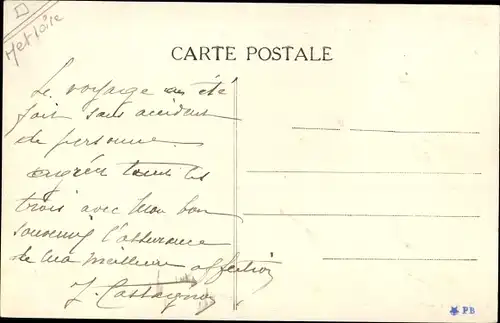 M et Loire
CARTE POSTALE
Le voyage a été
fait sans accident
de personne.
agréez tous les
trois avec mon bon
souvenir l'assurance
de ma meilleure affection
J. Castagnoy
PB